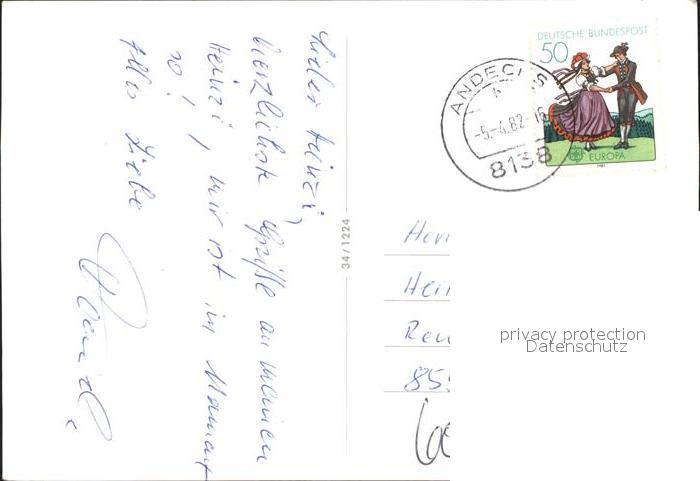 Lieber Heinzi,
herzlichste Grüße an meinen
Heinzi, mir ist im Moment
so!
Alles Liebe
DEUTSCHE BUNDESPOST
50
EUROPA
ANDECHS
-5.-4.82-16
8138
34/1224
Herr
Hein
Ren
85
privacy protection
Datenschutz